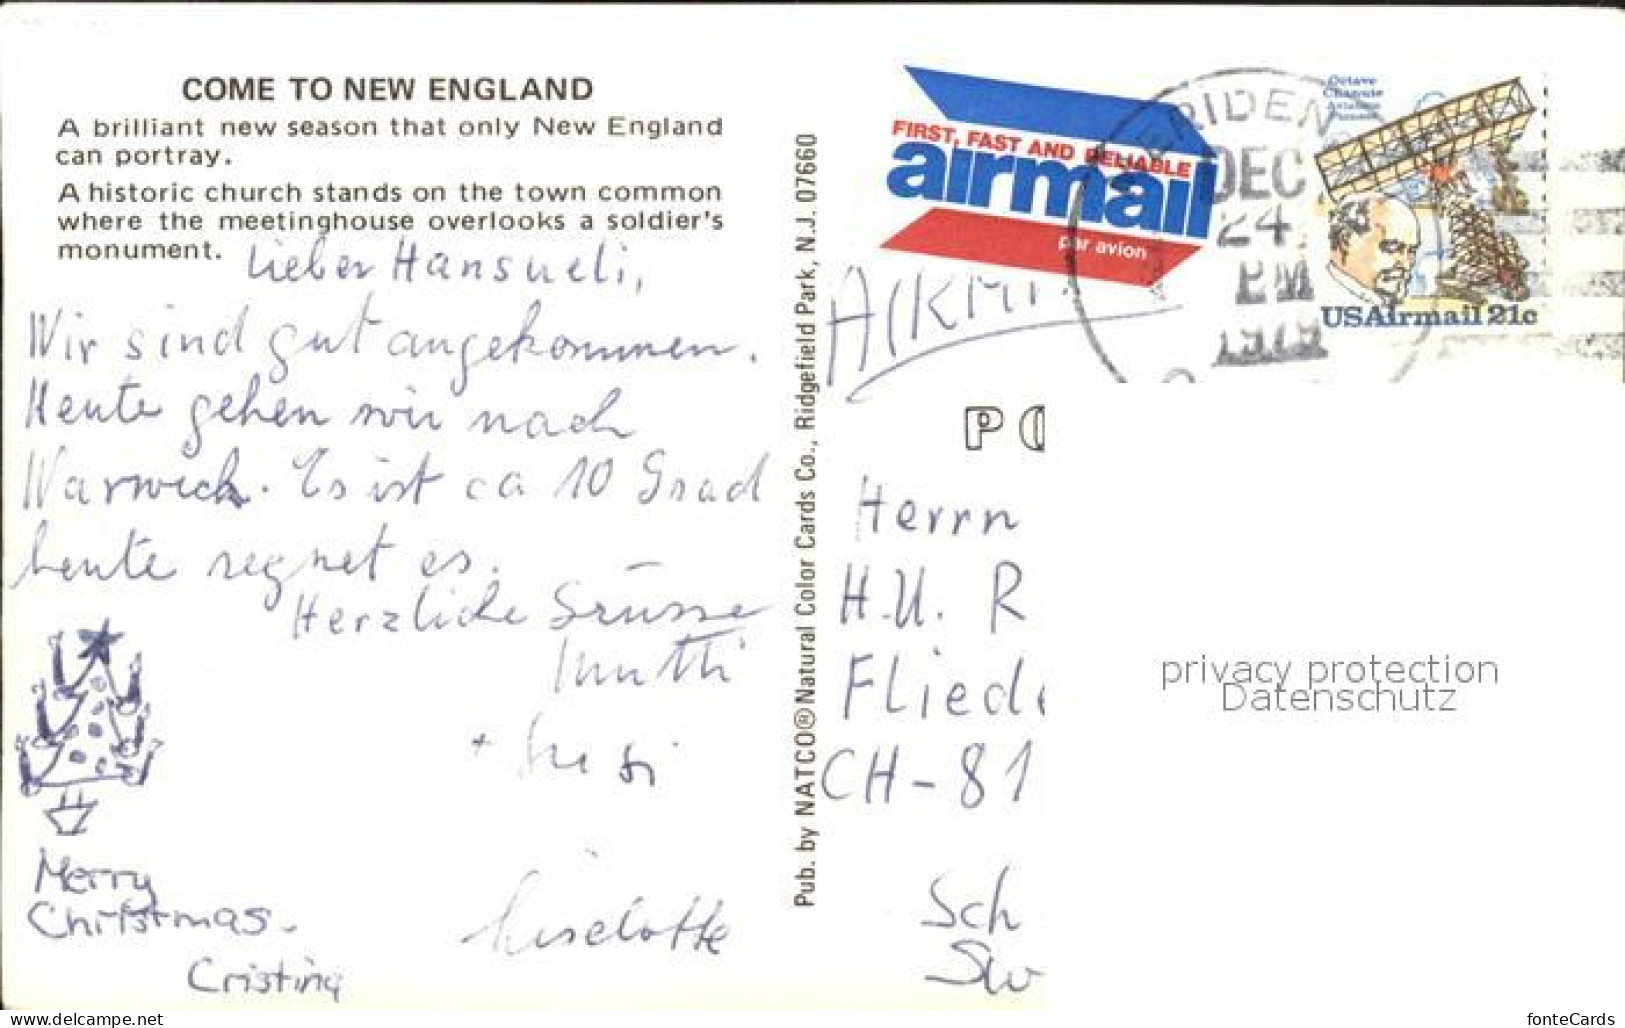 COME TO NEW ENGLAND
A brilliant new season that only New England
can portray.
A historic church stands on the town common
where the meetinghouse overlooks a soldier's
monument.
Lieber Hansueli,
Wir sind gut angekommen.
Heute gehen wir nach
Warwick. Es ist ca 10 Grad
heute regnet es.
Herzliche Grüsse
Mutti
+
Liselotte
Merry
Christmas.
Cristina
Pub. by NATCO® Natural Color Cards Co., Ridgefield Park, N.J. 07660
FIRST, FAST AND RELIABLE
airmail
par avion
ERIDEN
DEC
24
PM
Octave
Chanute
Aviation
Pioneer
USAirmail 21c
PO
Herrn
H.U. R
Fliede
CH-81
Sch
Sw
privacy protection
Datenschutz
www.delcampe.net
fonteCards